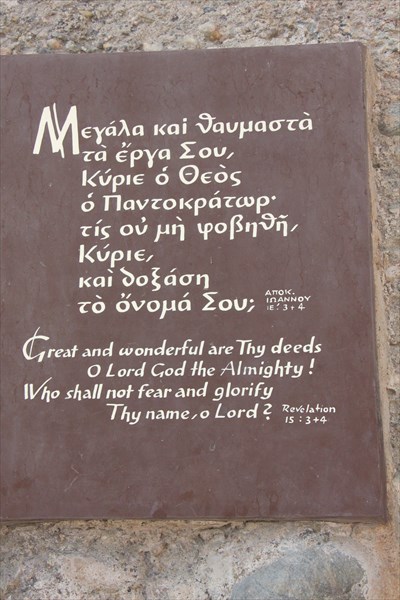 Μεγάλα καὶ θαυμαστὰ
τὰ ἔργα Σου,
Κύριε ὁ Θεὸς
ὁ Παντοκράτωρ·
τίς οὐ μὴ φοβηθῇ,
Κύριε,
καὶ δοξάσῃ
τὸ ὄνομά Σου;
ΑΠΟΚ.
ΙΩΑΝΝΟΥ
ΙΕ: 3+4
Great and wonderful are Thy deeds
O Lord God the Almighty!
Who shall not fear and glorify
Thy name, o Lord?
Revelation
15:3+4